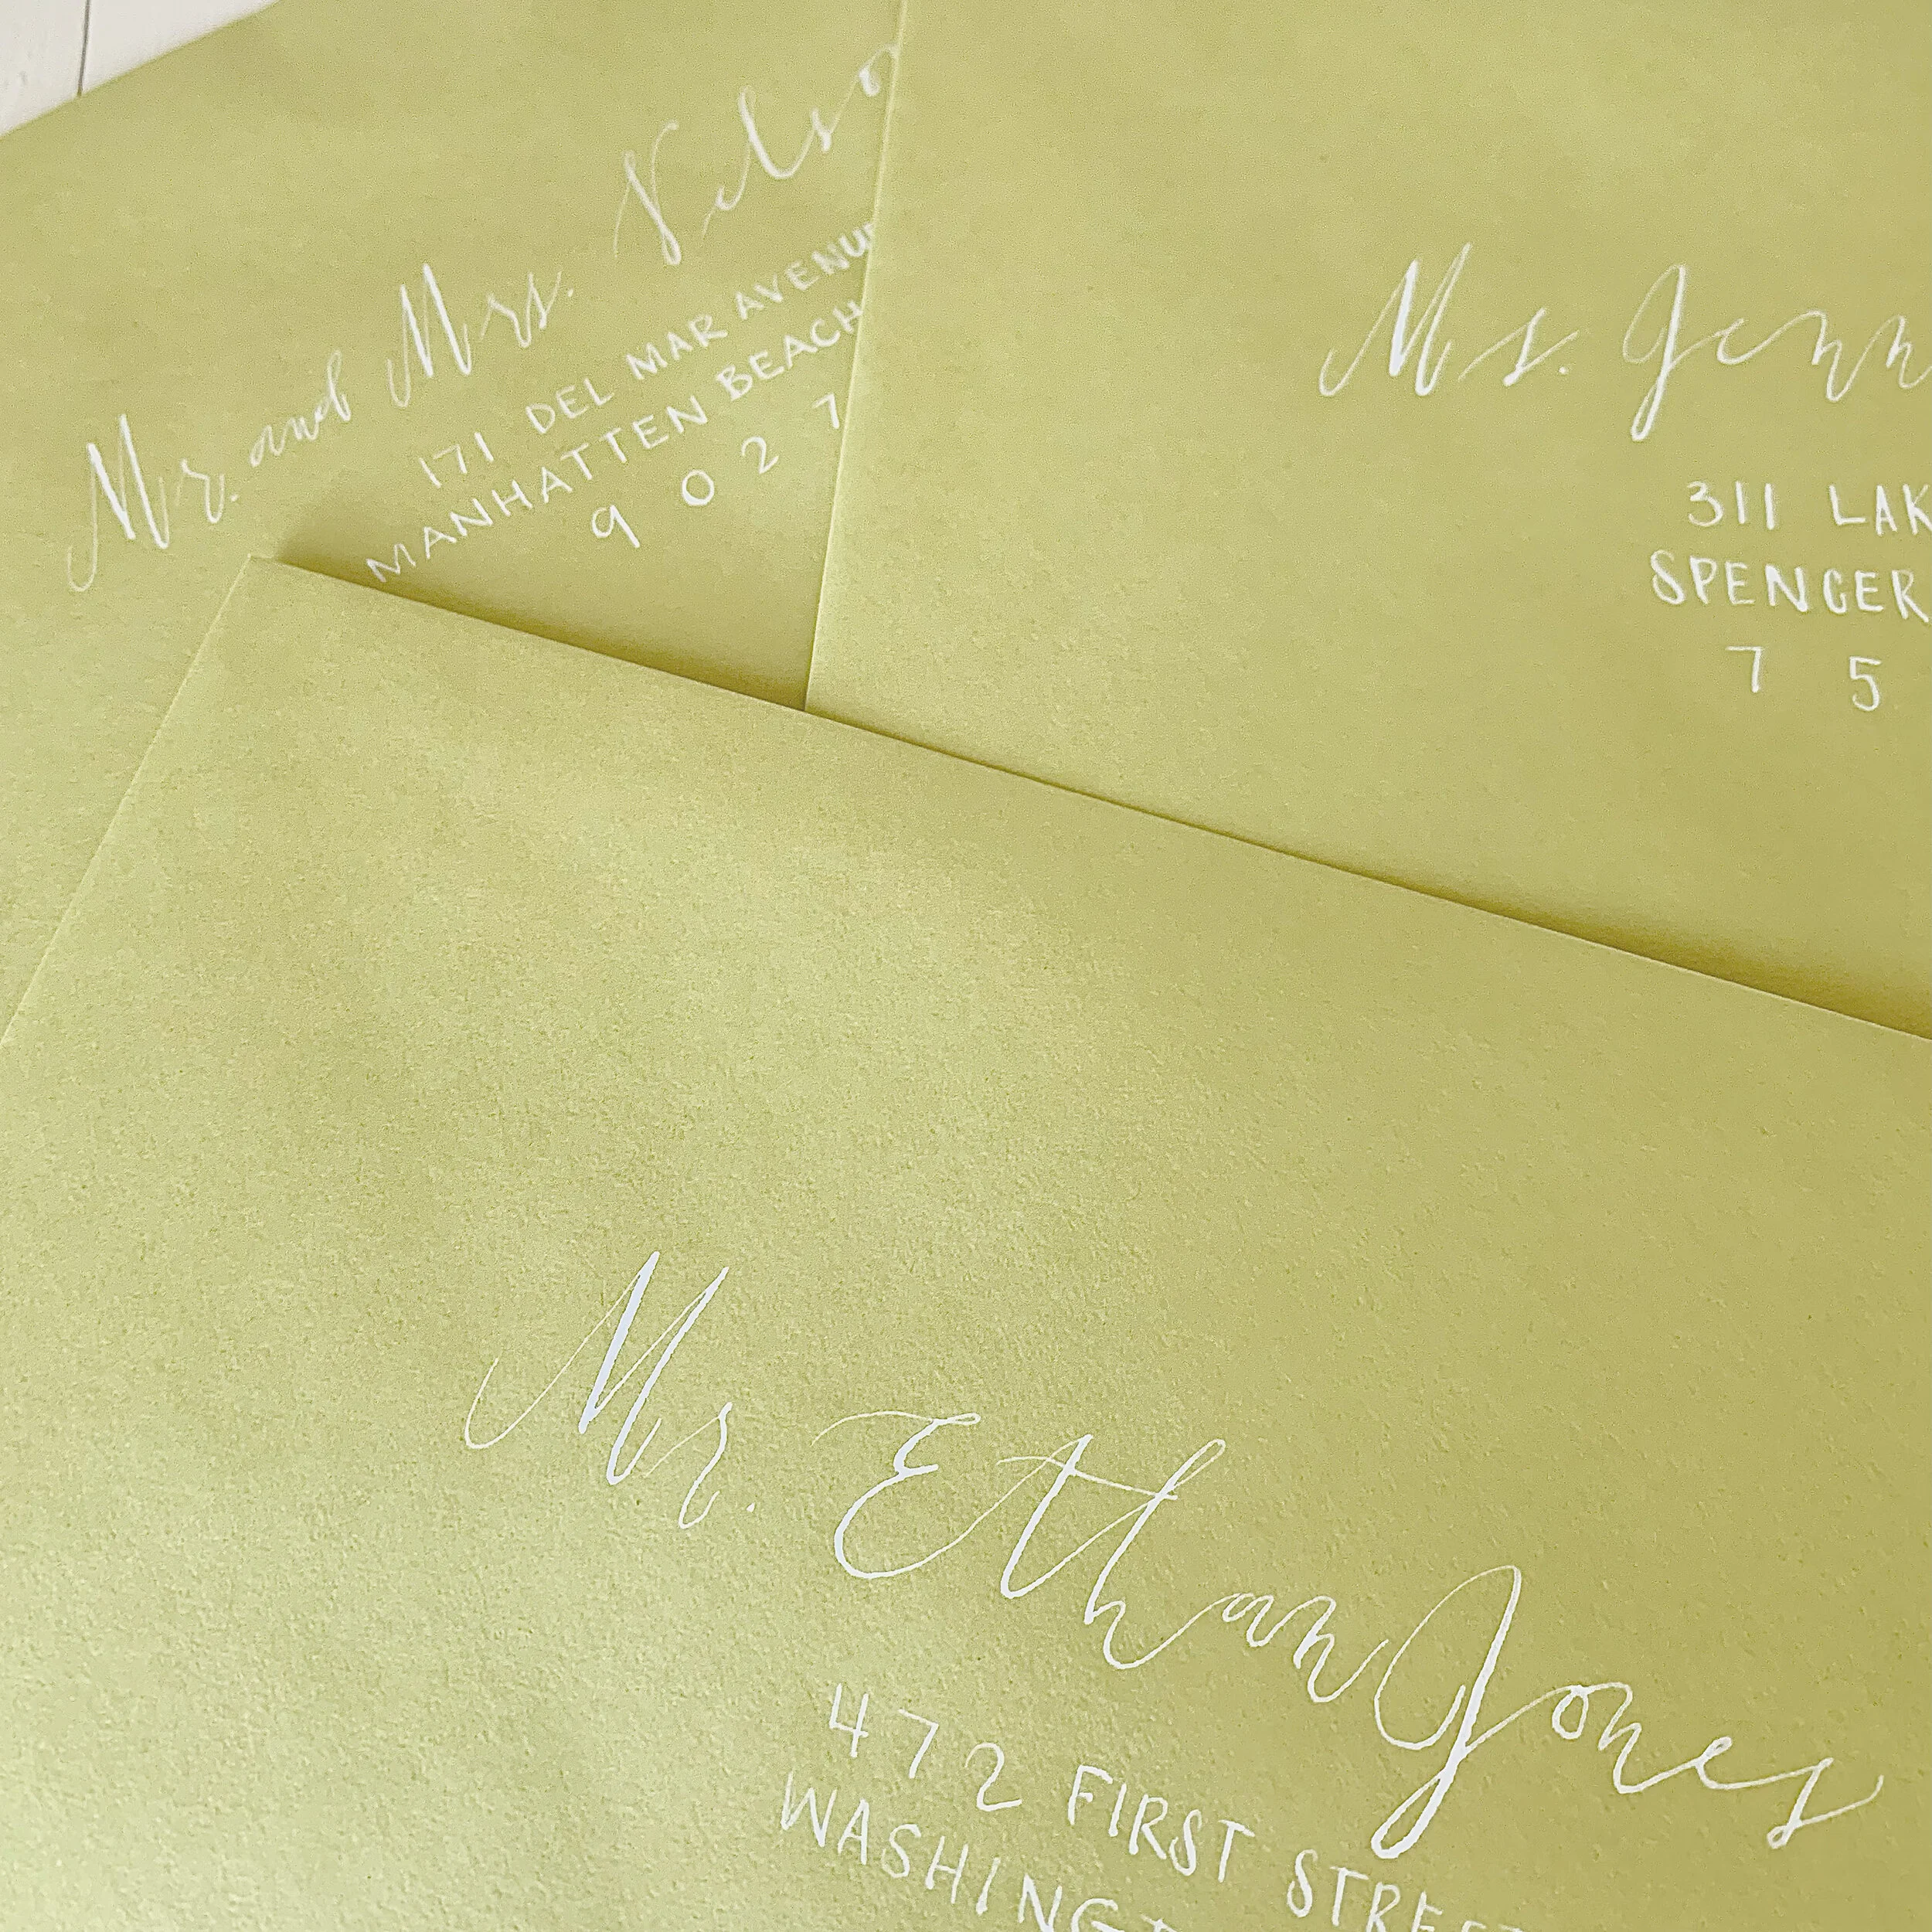 Mr. and Mrs. Nelso
171 DEL MAR AVENUE
MANHATTEN BEACH
9 0 2 7
Ms. Jenn
311 LAK
SPENCER
7 5
Mr. Ethan Jones
472 FIRST STREET
WASHINGT